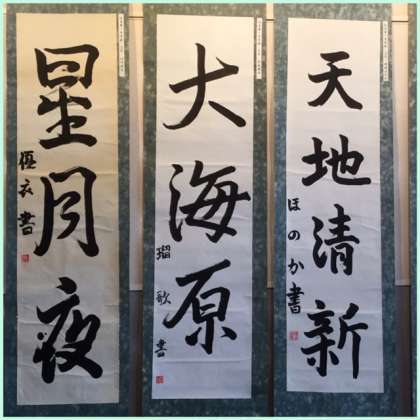 星月夜
大海原
瑠歌書
天地清新
ほのか書